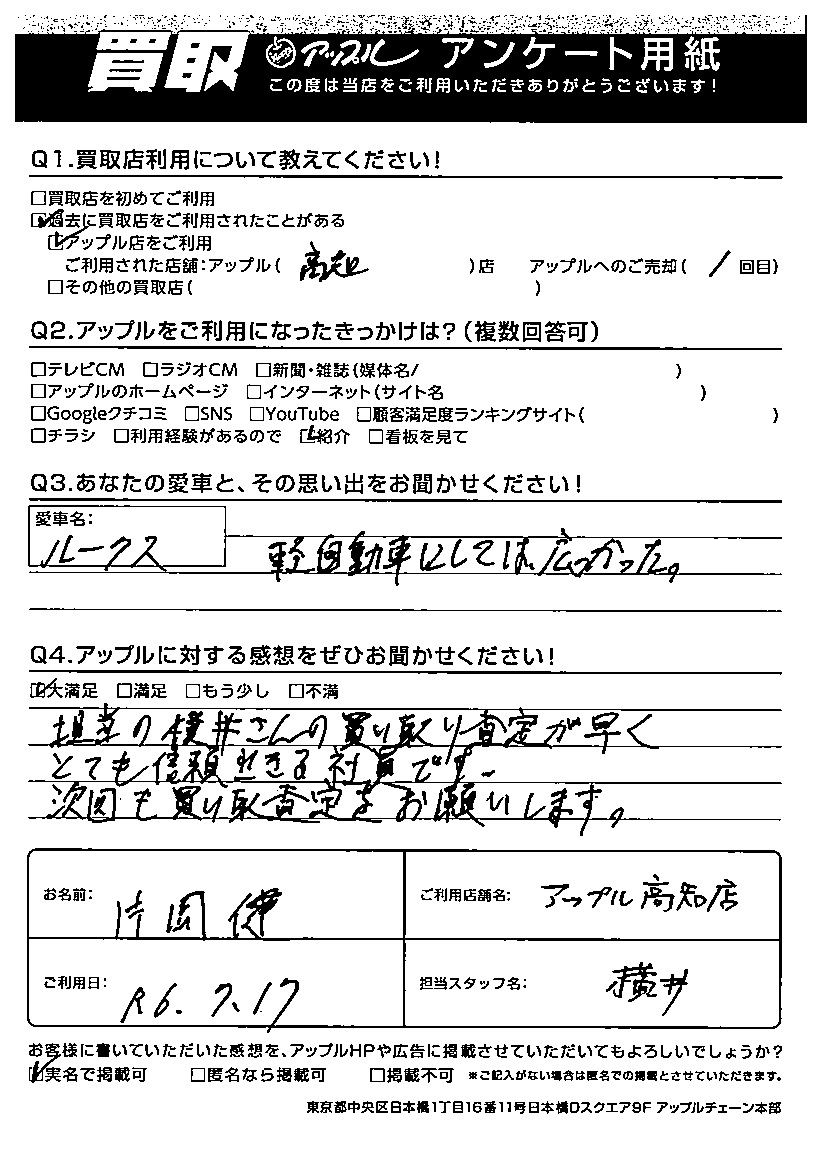 買取 アップル アンケート用紙
この度は当店をご利用いただきありがとうございます!
Q1.買取店利用について教えてください!
□買取店を初めてご利用
☑過去に買取店をご利用されたことがある
☑アップル店をご利用
ご利用された店舗:アップル( 高知 )店 アップルへのご売却( 1 回目)
□その他の買取店( )
Q2.アップルをご利用になったきっかけは?(複数回答可)
□テレビCM □ラジオCM □新聞・雑誌(媒体名/ )
□アップルのホームページ □インターネット(サイト名 )
□Googleクチコミ □SNS □YouTube □顧客満足度ランキングサイト( )
□チラシ □利用経験があるので ☑紹介 □看板を見て
Q3.あなたの愛車と、その思い出をお聞かせください!
愛車名:
ルークス 軽自動車にしては、広かった。
Q4.アップルに対する感想をぜひお聞かせください!
☑大満足 □満足 □もう少し □不満
担当の横井さんの買い取り査定が早く
とても信頼できる社員です。
次回も買い取査定をお願いします。
お名前: 片岡 健 ご利用店舗名: アップル高知店
ご利用日: R6.7.17 担当スタッフ名: 横井
お客様に書いていただいた感想を、アップルHPや広告に掲載させていただいてもよろしいでしょうか?
☑実名で掲載可 □匿名なら掲載可 □掲載不可 ※ご記入がない場合は匿名での掲載とさせていただきます。
東京都中央区日本橋1丁目16番11号日本橋Dスクエア9F アップルチェーン本部